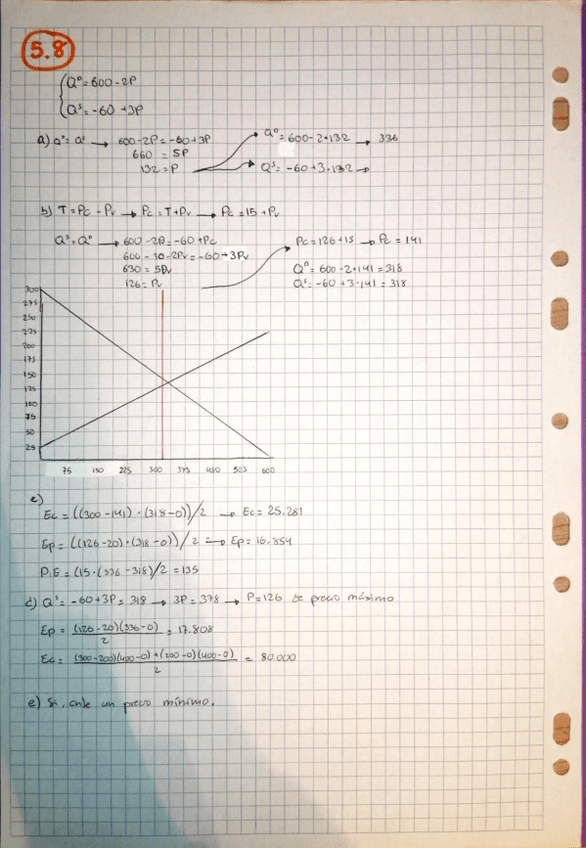 5.8
Q⁰=600-2P
Qˢ=-60+3P
a) Q⁰=Qˢ → 600-2P=-60+3P
660 = 5P
132=P
Q⁰=600-2·132 → 336
Qˢ=-60+3·132 →
b) T=Pc-Pv → Pc=T+Pv → Pc=15+Pv
Qˢ=Q⁰ → 600-2P=-60+Pc
600-30-2Pv=-60+3Pv
630=5Pv
126=Pv
Pc=126+15 → Pc=141
Q⁰=600-2·141=318
Qˢ=-60+3·141=318
300
275
250
225
200
175
150
125
100
75
50
25
75 150 225 300 375 450 525 600
c)
Ec=((300-141)·(318-0))/2 → Ec=25.281
Ep=((126-20)·(318-0))/2 → Ep=16.854
P.E=(15·(336-318)/2=135
d) Qˢ=-60+3P=318 → 3P=378 → P=126 de precio máximo
Ep=(126-20)(336-0)/2=17.808
Ec=(300-200)(400-0)+(200-0)(400-0)/2=80.000
e) Si, ante un precio mínimo.